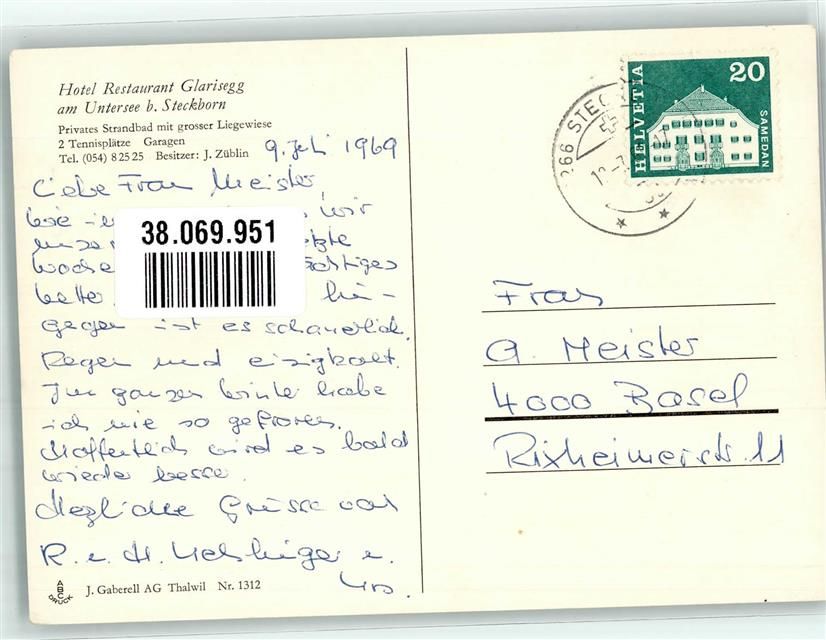 Hotel Restaurant Glarisegg
am Untersee b. Steckborn
Privates Strandbad mit grosser Liegewiese
2 Tennisplätze Garagen
Tel. (054) 8 25 25 Besitzer: J. Züblin
9. Juli 1969
Liebe Frau Meister,
wir
letzte
Woche
hin-
gegen ist es schauerlich.
Regen und eisigkalt.
Im ganzen Winter habe
ich nie so gefroren.
Hoffentlich wird es bald
wieder besser.
Herzliche Grüsse von
R. u. H.
Urs.
J. Gaberell AG Thalwil Nr. 1312
ABC
DRUCK
38.069.951
266 STEC
HELVETIA
20
SAMEDAN
Frau
G. Meister
4000 Basel
Rixheimerstr. 11